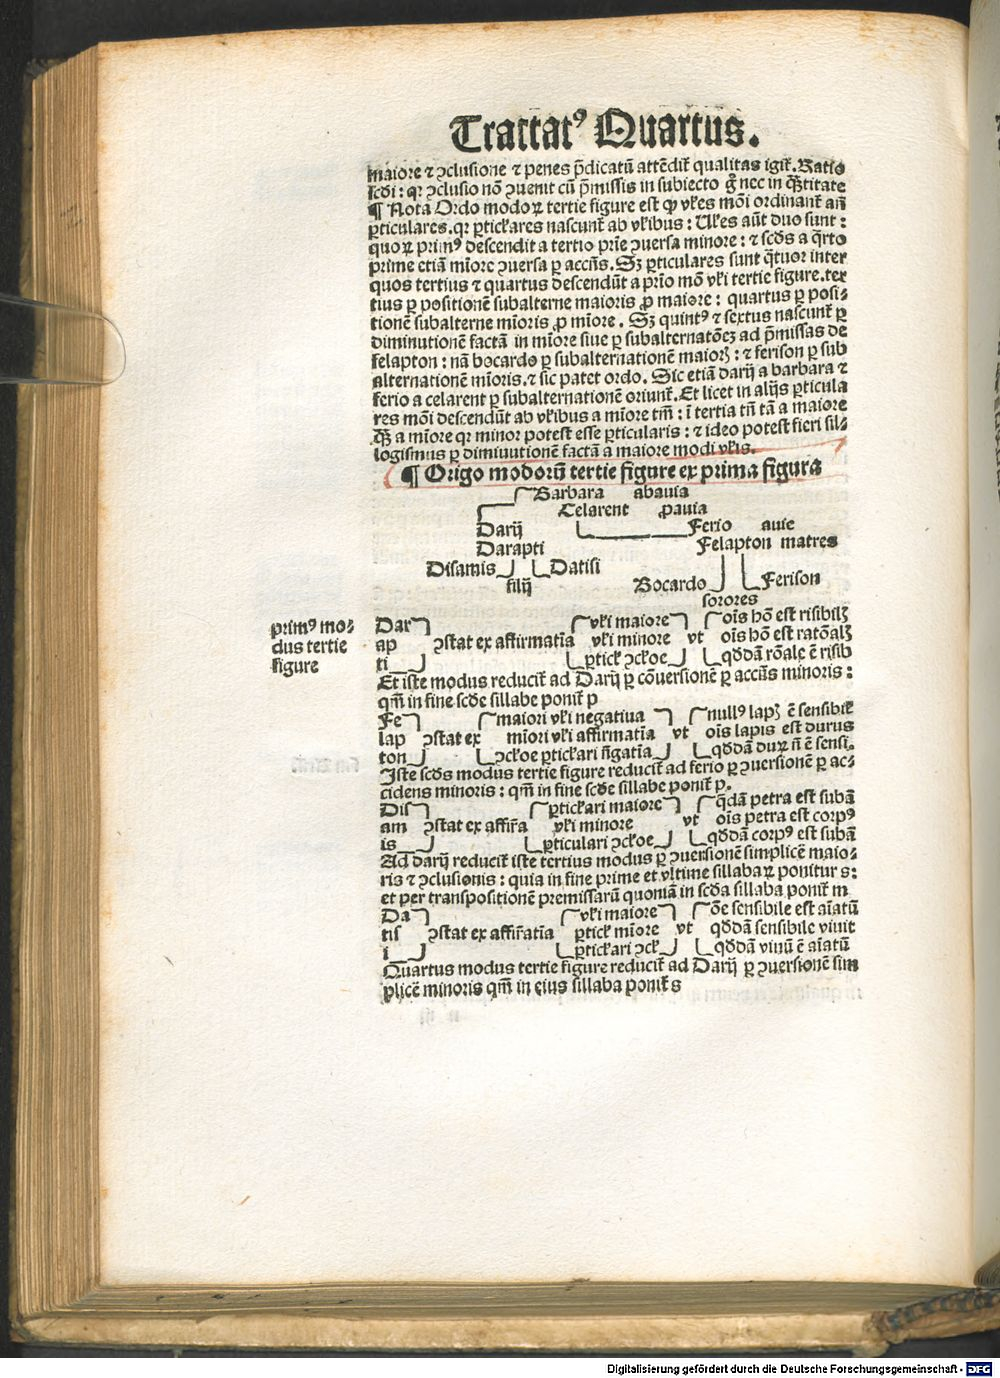 Tractatꝰ Quartus.
maiore ⁊ ꝯclusione ⁊ penes p̄dicatū attēdit᷑ qualitas igit᷑. Ratio
scd̄i: qꝛ ꝯclusio nō ꝯuenit cū p̄missis in subiecto g̊ nec in q̄titate
¶ Nota Ordo modoꝝ tertie figure est ꝙ vl̓es mōi ordinant᷑ añ
ꝑticulares. qꝛ ꝑticl̓ares nascunt᷑ ab vl̓ibus: Ul̓es aūt duo sunt:
quoꝝ primꝰ descendit a tertio prīe ꝯuersa minore: ⁊ scd̄s a q̄rto
prime etiā mīore ꝯuersa ꝑ accñs. Sꝫ ꝑticulares sunt q̄tuor inter
quos tertius ⁊ quartus descendūt a prīo mō vl̓i tertie figure. ter
tius ꝑ positionē subalterne maioris ꝓ maiore: quartus ꝑ posi-
tionē subalterne mīoris ꝓ mīore. Sꝫ quintꝰ ⁊ sextus nascunt᷑ ꝑ
diminutionē factā in mīore siue ꝑ subalternatōeꝫ ad p̄missas de
felapton: nā bocardo ꝑ subalternationē maioꝝ: ⁊ ferison ꝑ sub
alternationē mīoris. ⁊ sic patet ordo. Sic etiā darij a barbara ⁊
ferio a celarent ꝑ subalternationē oriunt᷑. Et licet in alijs ꝑticula
res mōi descendūt ab vl̓ibus a mīore tm̄: ī tertia tn̄ tā a maiore
q̄ꝫ a mīore qꝛ minor potest esse ꝑticularis: ⁊ ideo potest fieri sil-
logismus ꝑ dimiuutionē factā a maiore modi vl̓is.
¶ Origo modorū tertie figure ex prima figura
Barbara abauia
Celarent ꝓauia
Darij Ferio auie
Darapti Felapton matres
Disamis Datisi
filij Bocardo Ferison
sorores
primꝰ mo-
dus tertie
figure
Dar vl̓i maiore oīs hō est risibilꝫ
ap ꝯstat ex affirmatīa vl̓i minore vt oīs hō est ratōalꝫ
ti ꝑticl̓ ꝯcl̓oe qd̄dam rōale ē risib
Et iste modus reducit᷑ ad Darij ꝑ cōuersionē ꝑ accñs minoris:
qm̄ in fine scd̄e sillabe ponit᷑ p
Fe maiori vl̓i negatiua nullꝰ lapꝫ ē sensibil̓
lap ꝯstat ex mīori vl̓i affirmatīa vt oīs lapis est durus
ton ꝯcl̓oe ꝑticl̓ari n̄gatīa qd̄dā duꝝ n̄ ē sensi.
Iste scd̄s modus tertie figure reducit᷑ ad ferio ꝑ ꝯuersionē ꝑ ac-
cidens minoris: qm̄ in fine scd̄e sillabe ponit᷑ p.
Dis ꝑticl̓ari maiore q̄dā petra est subā
am ꝯstat ex affir̄a vl̓i minore vt oīs petra est corpꝰ
is ꝑticulari ꝯcl̓oe qd̄dā corpꝰ est subā
Ad darij reducit᷑ iste tertius modus ꝑ ꝯuersionē simplicē maio-
ris ⁊ ꝯclusionis: quia in fine prime et vltime sillabaꝝ ponitur s:
et per transpositionē premissarū quoniā in scd̄a sillaba ponit᷑ m
Da vl̓i maiore ōe sensibile est aīatū
tis ꝯstat ex affir̄matīa ꝑticl̓ mīore vt qd̄dā sensibile viuit
i ꝑticl̓ari ꝯcl̓ qd̄dā viuū ē aīatū
Quartus modus tertie figure reducit᷑ ad Darij ꝑ ꝯuersionē sim
plicē minoris qm̄ in eius sillaba ponit᷑ s
Digitalisierung gefördert durch die Deutsche Forschungsgemeinschaft - DFG